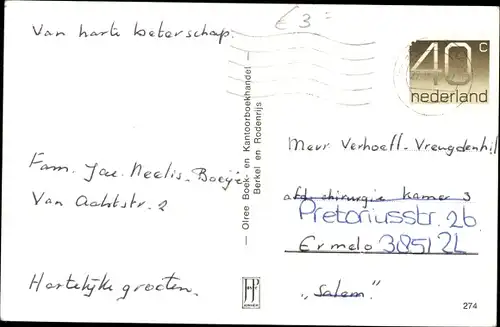 Van harte beterschap.
€ 3=
Fam. Jac. Neelis-Boeije
Van Achtstr. 2
Hartelijke groeten.
— Olree Boek- en Kantoorboekhandel —
Berkel en Rodenrijs
40 c
nederland
Mevr Verhoeff-Vreugdenhil
afd chirurgie kamer 3
Pretoriusstr. 2b
Ermelo 3851ZL
"Salem"
274